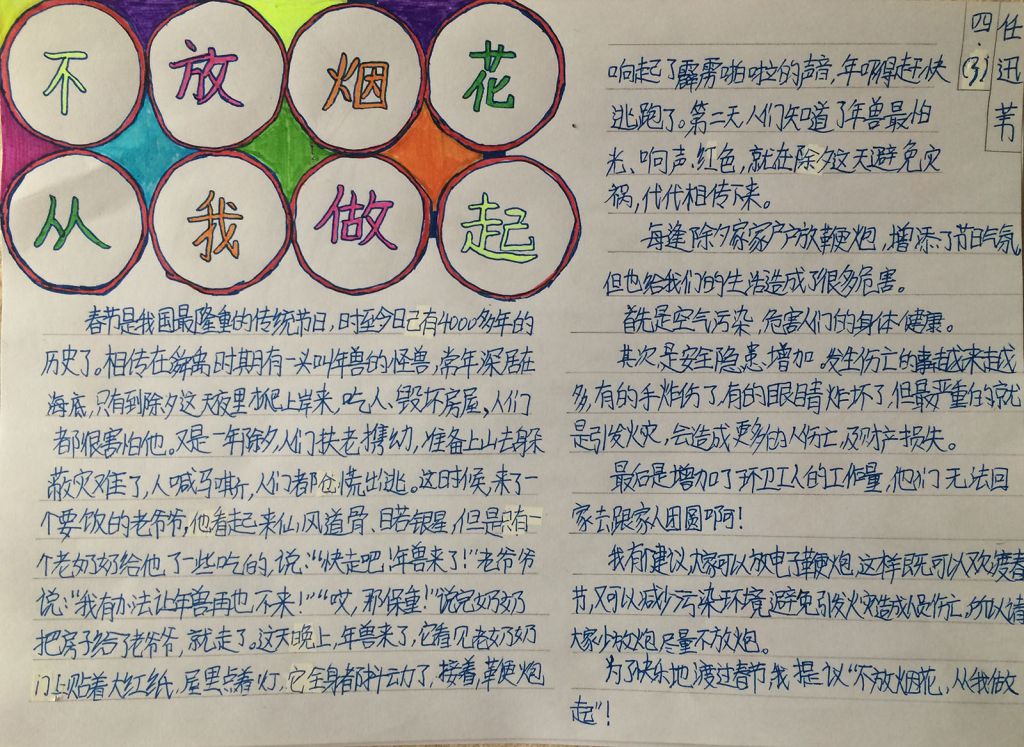 不放烟花
从我做起
春节是我国最隆重的传统节日，时至今日已有4000多年的
历史了。相传在舜禹时期有一头叫年兽的怪兽，常年深居在
海底，只有到除夕这天夜里才爬上岸来，吃人、毁坏房屋，人们
都很害怕他。又是一年除夕，人们扶老携幼，准备上山去躲
蔽灾难了，人喊马嘶，人们都仓慌出逃。这时候，来了一
个要饭的老爷爷，他看起来仙风道骨、目若银星，但是只有一
个老奶奶给他了一些吃的，说：“快走吧！年兽来了！”老爷爷
说：“我有办法让年兽再也不来！”“哎，那保重！”说完奶奶
把房子给了老爷爷，就走了。这天晚上，年兽来了，它看见老奶奶
门上贴着大红纸，屋里点着灯，它全身都抖动了，接着，鞭炮
四(3)
任迅苇
响起了霹雳啪啦的声音，年吓得赶快
逃跑了。第二天人们知道了年兽最怕
光、响声、红色，就在除夕这天避免灾
祸，代代相传下来。
每逢除夕家家户户放鞭炮，增添了节日气氛，
但也给我们的生活造成了很多危害。
首先是空气污染，危害人们的身体健康。
其次是安全隐患增加。发生伤亡的事越来越
多，有的手炸伤了，有的眼睛炸坏了，但最严重的就
是引发火灾，会造成更多的人伤亡，及财产损失。
最后是增加了环卫工人的工作量，他们无法回
家去跟家人团圆啊！
我有个建议，大家可以放电子鞭炮，这样既可以欢度春
节，又可以减少污染环境，避免引发火灾造成人员伤亡，所以请
大家少放炮，尽量不放炮。
为了快乐地渡过春节，我提议“不放烟花，从我做
起”！